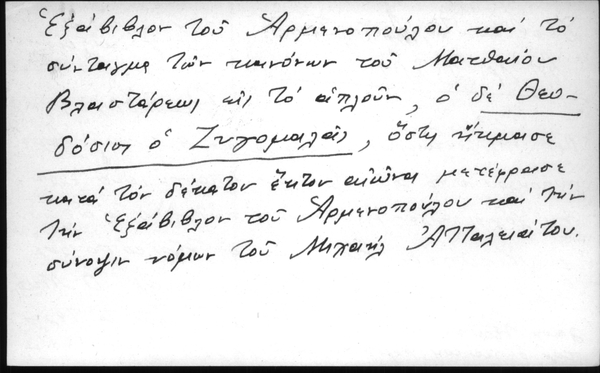 Ἑξάβιβλον τοῦ Ἁρμενοπούλου καί τό
σύνταγμα τῶν κανόνων τοῦ Ματθαίου
Βλαστάρεως εἰς τό ἁπλοῦν, ὁ δέ Θεο-
δόσιος ὁ Ζυγομαλᾶς, ὅστις ἤκμασε
κατά τόν δέκατον ἕκτον αἰῶνα μετέφρασε
τήν Ἑξάβιβλον τοῦ Ἁρμενοπούλου καί τήν
σύνοψιν νόμων τοῦ Μιχαήλ Ἀτταλειάτου.